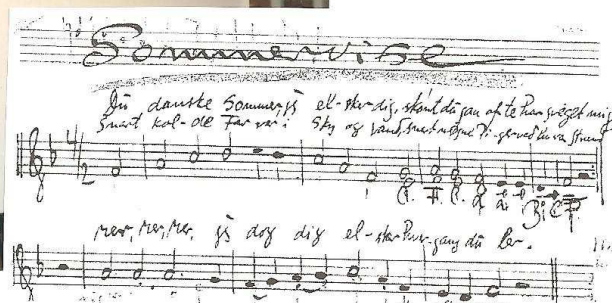 Sommervise
Du danske Sommer, jeg el-sker dig, skønt du saa ofte har sveget mig
Snart kol-de Far-ver i Sky og Vand, snart nøgne Pi-ger ved hver Strand
Mer, Mer, Mer, jeg dog dig el-sker hver gang du ler.